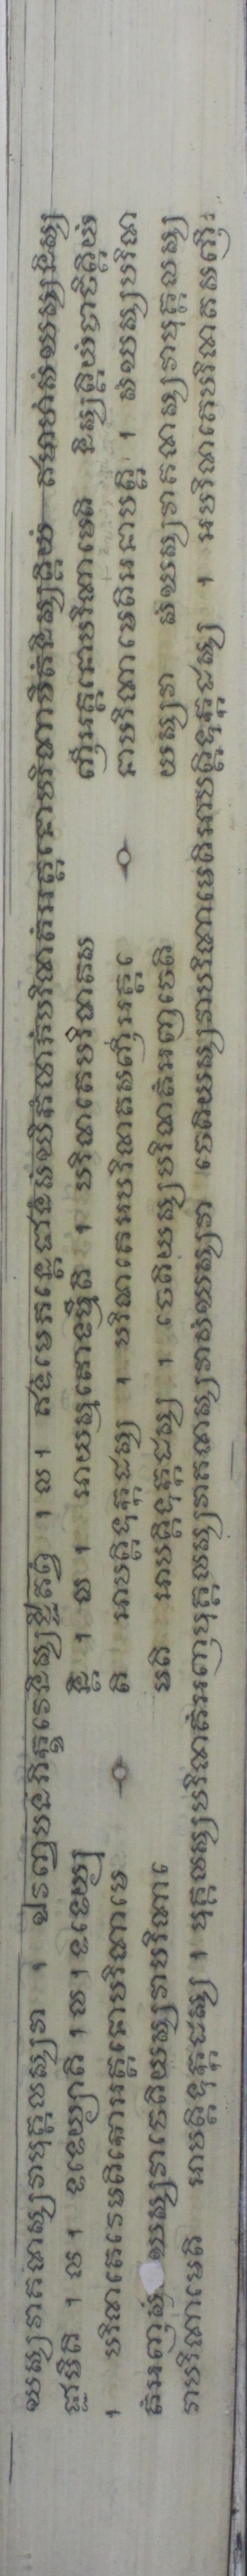 ឃស្សវាគណស្សវាបុគ្គលស្សវា ។ ឯវញ្ចបនភិក្ខវេនិស្សជ្ជិតព្វំ ។ ល ។ ឥទំមេភន្តេជានំសំឃិកំលាភំបរិណតំអត្តនោបរិណាមិតំនិស្សគ្គិយំ ឥមាហំសំឃស្សនិស្ស
ជ្ជាមីតិ ។ ល ។ ទទេយ្យាតិ ។ ល ។ ទទេយ្យុ ន្តិ ។ ល ។ អាយស្មតោទម្មីតិ ។ បរិណតេបរិណតស ញ្ញីអត្តនោបរិណាមេតិ និស្សគ្គិយំបាចិត្តិយំ
។ បរិណតេវេមតិកោអត្តនោបរិណាមេ តិ អាបត្តិទុក្កដស្ស ។ បរិណតេអបរិណតសញ្ញីអត្តនោ បរិណាមេតិអនាបត្តិ ។ សំឃស្សបរិណ
តំអញ្ញសំ ឃស្សវាចេតិយស្សវាបរិណាមេ តិ អាបត្តិទុក្កដស្ស ។ ចេតិយស្សបរិណតំអញ្ញចេតិ យស្សវា សំឃស្សវាគណស្សវាបុគ្គលស្ស
វាបរិណាមេតិ អាបត្តិទុក្កដស្ស ។ បុគ្គលស្សបរិណតំអញ្ញបុគ្គលស្សវាគណស្សវាសំឃស្សវា ចេតិយស្សវាបរិណាមេតិអាបត្តិទុក្កដស្ស ។ អបរិណតេបរិណតសញ្ញី